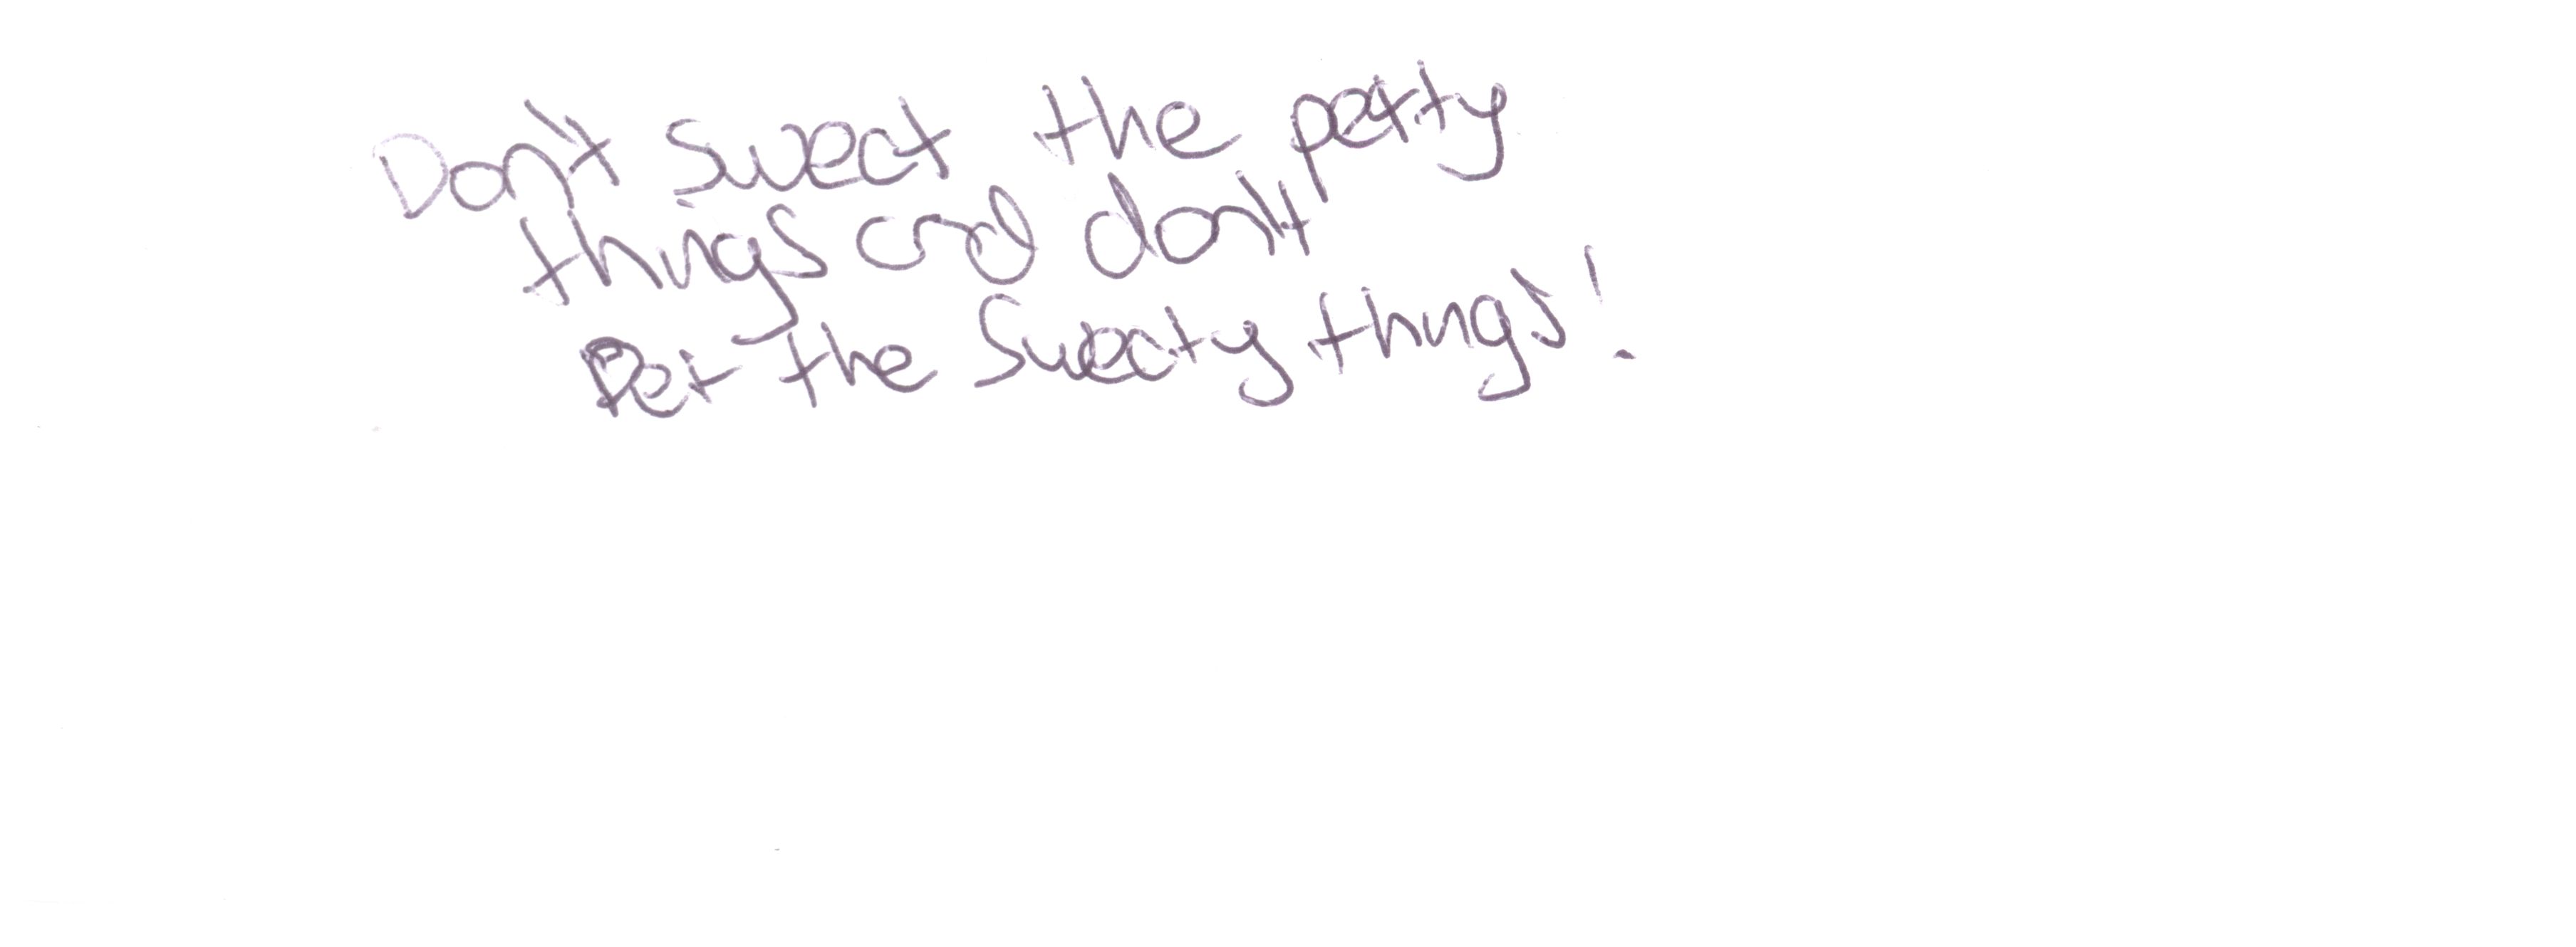 Don't sweat the petty
things and don't
Pet the Sweaty things!